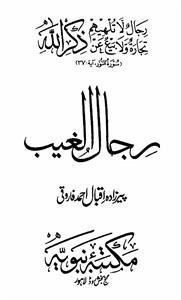 رِجَالٌ لَا تُلْهِيهِمْ
تِجَارَةٌ وَلَا بَيْعٌ عَنْ ذِكْرِ اللّٰهِ
(سُورۃُ النُّور، آیة ۳۷)
رجال الغیب
پیرزادہ اقبال احمد فاروقی
مکتبہ نبویہ
گنج بخش روڈ لاہور